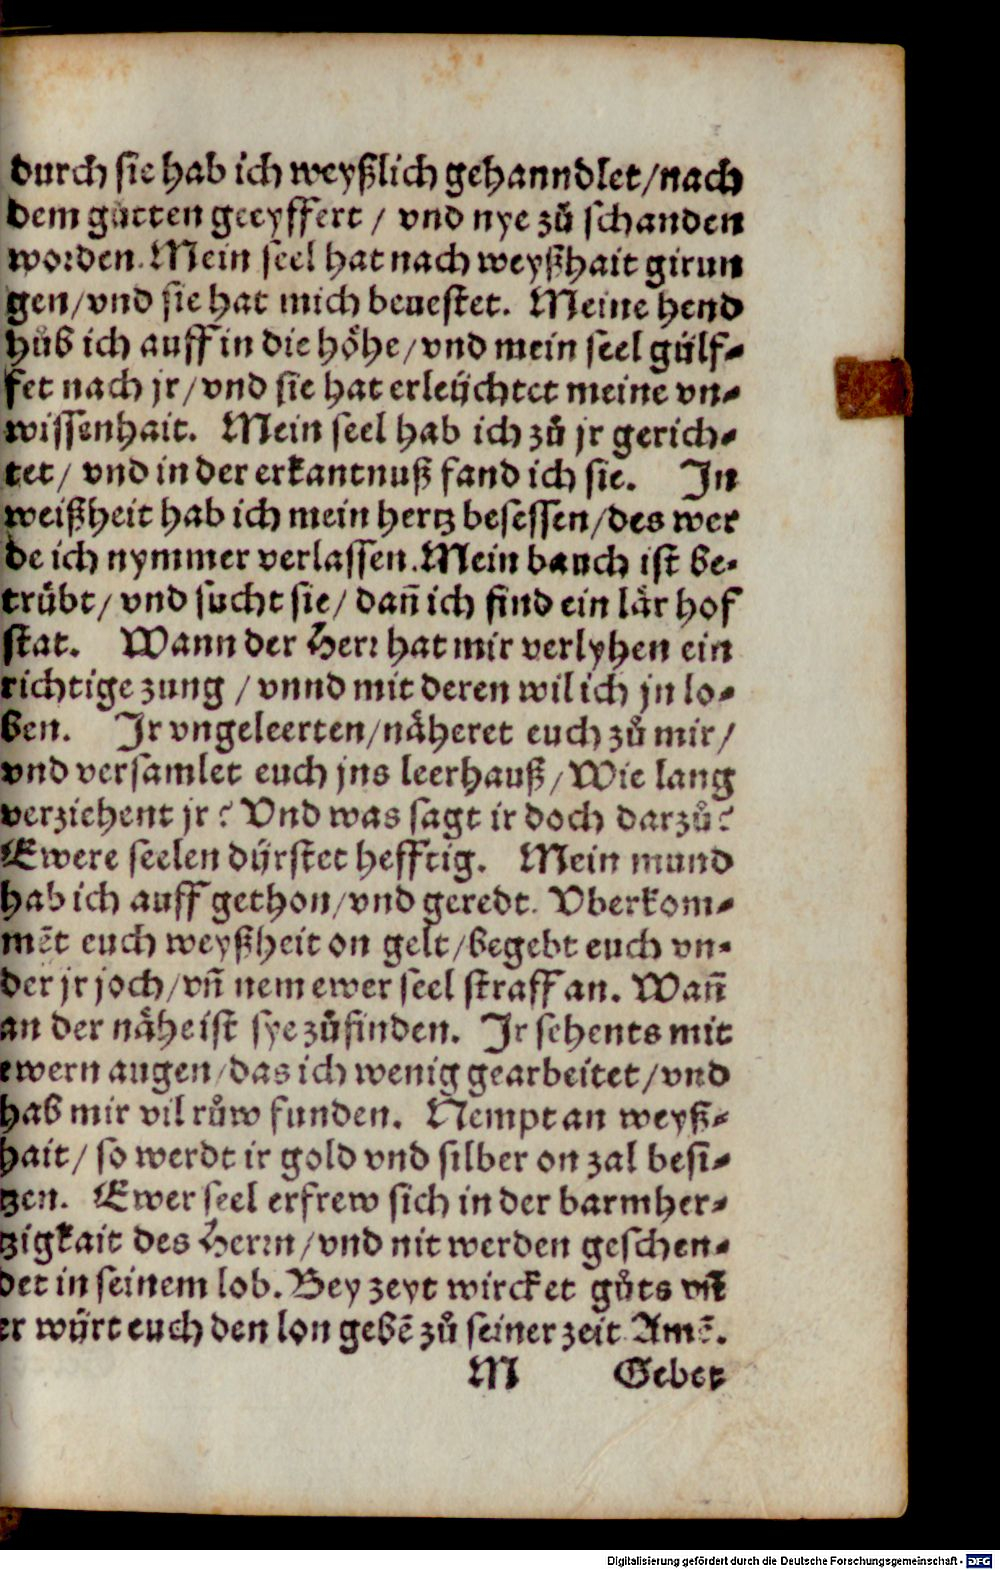 durch sie hab ich weyßlich gehanndlet/nach
dem gůtten geeyffert / vnd nye zů schanden
worden. Mein seel hat nach weyßhait girun
gen/vnd sie hat mich beuestet. Meine hend
hůb ich auff in die höhe/vnd mein seel gülf-
fet nach jr/vnd sie hat erleüchtet meine vn-
wissenhait. Mein seel hab ich zů jr gerich-
tet/ vnd in der erkantnuß fand ich sie. In
weißheit hab ich mein hertz besessen/des wer
de ich nymmer verlassen. Mein bauch ist be-
trübt/ vnd sucht sie/ dañ ich find ein lär hof
stat. Wann der Herr hat mir verlyhen ein
richtige zung / vnnd mit deren wil ich jn lo-
ben. Jr vngeleerten/näheret euch zů mir/
vnd versamlet euch jns leerhauß/Wie lang
verziehent jr? Vnd was sagt ir doch darzů?
Ewere seelen dürstet hefftig. Mein mund
hab ich auff gethon/vnd geredt. Vberkom-
mēt euch weyßheit on gelt/begebt euch vn-
der jr joch/vñ nem ewer seel straff an. Wañ
an der nähe ist sye zůfinden. Jr sehents mit
ewern augen/das ich wenig gearbeitet/vnd
hab mir vil růw funden. Nempt an weyß-
hait/ so werdt ir gold vnd silber on zal besi-
tzen. Ewer seel erfrew sich in der barmher-
zigkait des Herrn/vnd nit werden geschen-
det in seinem lob. Bey zeyt wircket gůts vñ
er würt euch den lon gebē zů seiner zeit Amē.
M Gebet
Digitalisierung gefördert durch die Deutsche Forschungsgemeinschaft - DFG